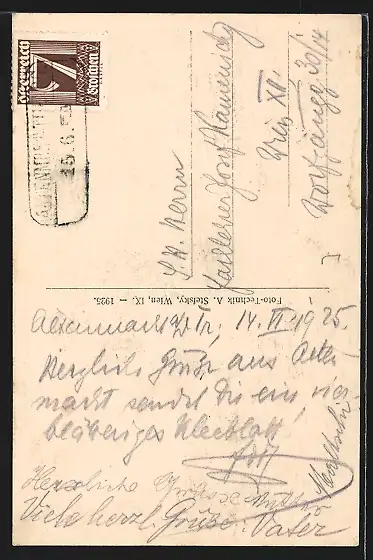 Österreich
7
Groschen
15.6.
S. H. Herrn
Fachlehrer Josef Kamensky
Wien XII.
Wolfganggasse 30/14
Foto-Technik A. Stefsky, Wien, IX. — 1925.
Altenmarkt 14. VI. 1925.
Herzliche Grüße aus Alten-
markt sendet Dir ein vier-
blättriges Kleeblatt
Herzliche Grüsse
Viele herzl. Grüsse Vater